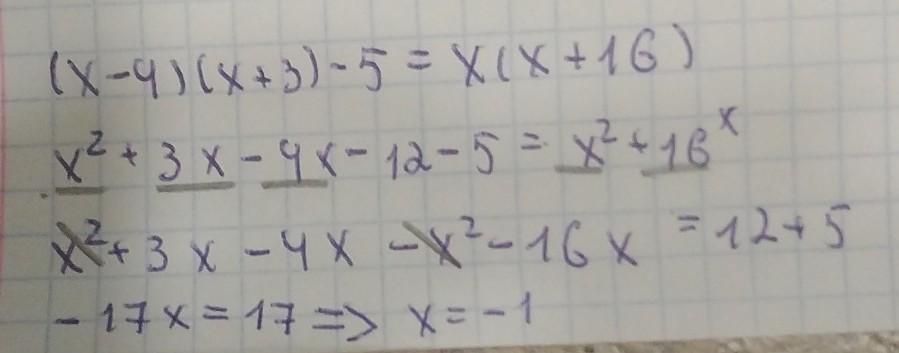 (x-4)(x+3)-5=x(x+16)
x²+3x-4x-12-5=x²+16x
x²+3x-4x-x²-16x=12+5
-17x=17=>x=-1